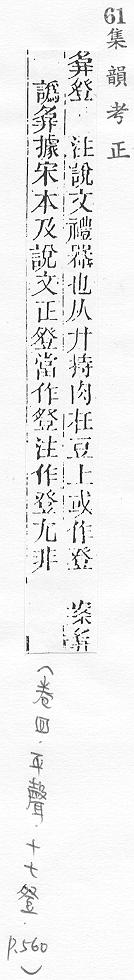 61集韻考正
𢍪䇮 注說文禮器也从廾持肉在豆上或作登 案𢍪
譌𢍪據宋本及說文正䇮當作䇮注作登尤非
(卷四.平聲.十七登.p.560)